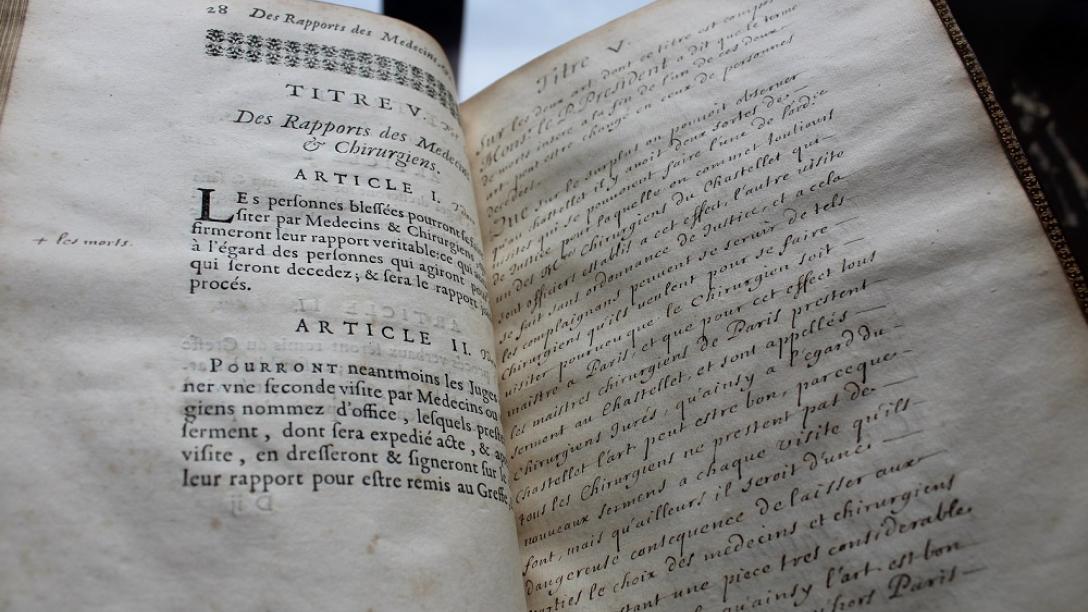 28 Des Rapports des Medecins
TITRE V.
Des Rapports des Medec
& Chirurgiens.
ARTICLE I.
LEs personnes blessées pourront se
siter par Medecins & Chirurgiens
firmeront leur rapport veritable: ce qui
à l'égard des personnes qui agiront pour
qui seront decedez; & sera le rapport
procés.
+ les morts.
ARTICLE II.
POURRONT neantmoins les Juges
ner vne seconde visite par Medecins ou
giens nommez d'office, lesquels prest
serment, dont sera expedié acte, & ap
visite, en dresseront & signeront sur le
leur rapport pour estre remis au Greffe,
D ij
Titre V.
sur les deux art. dont ce titre est compos
Mons.r le P. President a dit que le terme
de morts inseré a la fin de l'un de ces deux
art. peut estre changé en ceux de personnes
decedées.
Que sur le surplus on pouvoit observer
qu'au chastellet il y avoit deux sortes de
visites qui se pouvoient faire l'une de l'ord.e
de Justice pour laquelle on commet tousiours
un des M.es Chirurgiens du Chastellet qui
sont officiers establis a cet effect, l'autre visite
se fait sans ordonnance de Justice, et a cela
les complaignans peuvent se servir de tels
Chirurgiens qu'ils veulent pour se faire
visiter pourveu que le Chirurgien soit
maistre a Paris, et que pour cet effect tous
les maistres chirurgiens de Paris prestent
serment au Chastellet, et sont appellés
Chirurgiens Jurés, qu'ainsy a l'egard du
Chastellet l'art. peut estre bon, parceque
tous les Chirurgiens ne prestent pas de
nouveaux sermens a chaque visite qu'ils
font, mais qu'ailleurs il seroit d'une
dangereuse consequence de laisser aux
parties le choix des medecins et chirurgiens
estant une piece tres considerable
qu'ainsy l'art. est bon
hors Paris